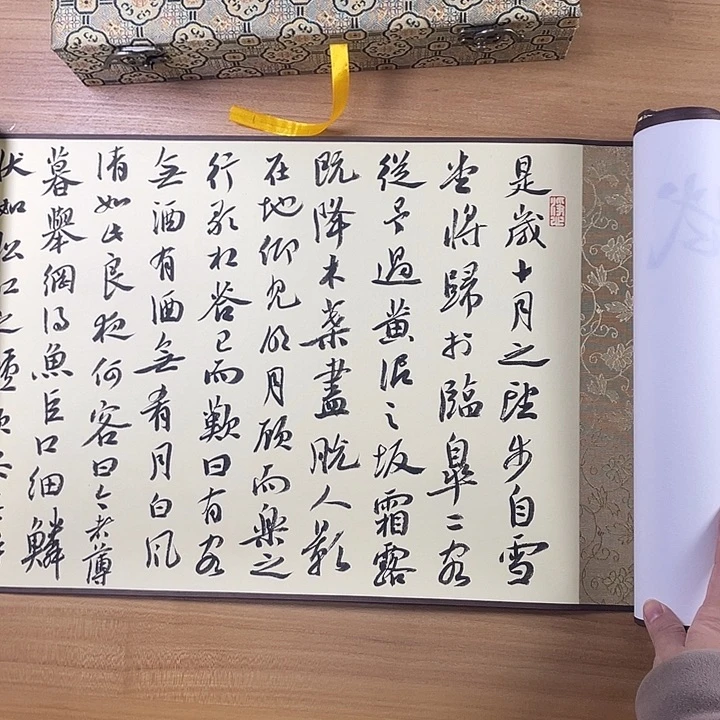 是歲十月之望步自雪
堂將歸於臨皋二客
從予過黃泥之坂霜露
既降木葉盡脫人影
在地仰見明月顧而樂之
行歌相答已而歎曰有客
無酒有酒無肴月白風
清如此良夜何客曰今者薄
暮舉網得魚巨口細鱗
狀如松江之鱸顧安